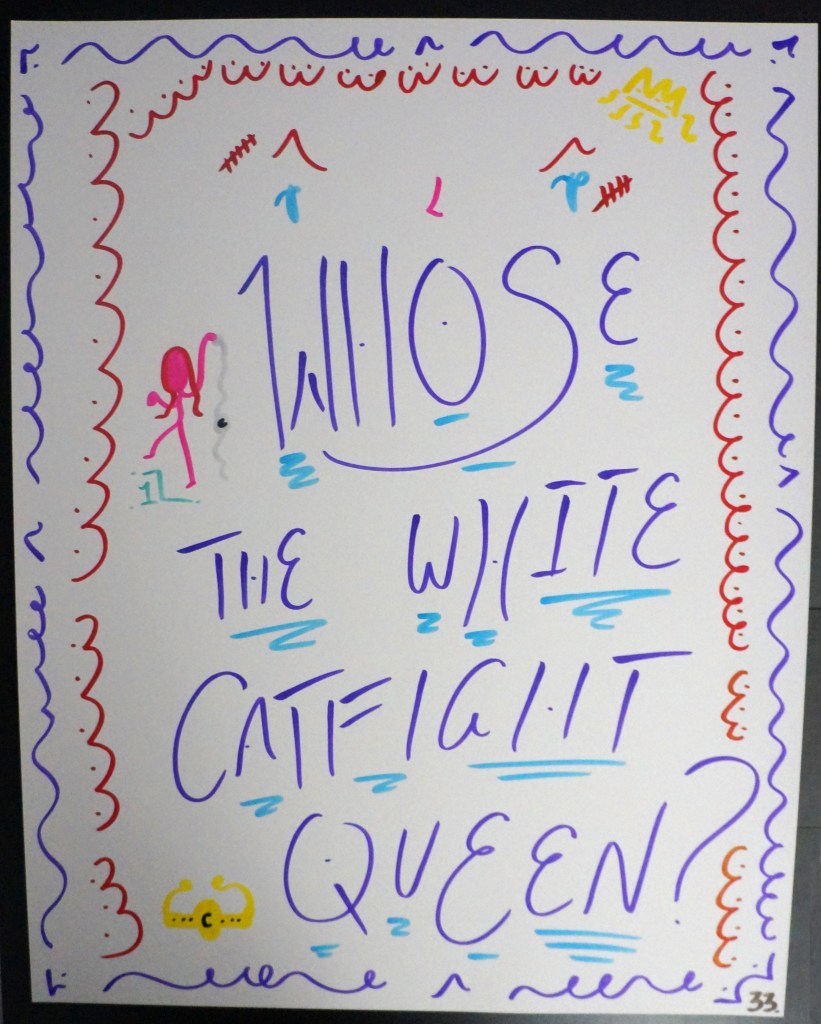 WHOSE
THE WHITE
CATFIGHT
QUEEN?
C
33.